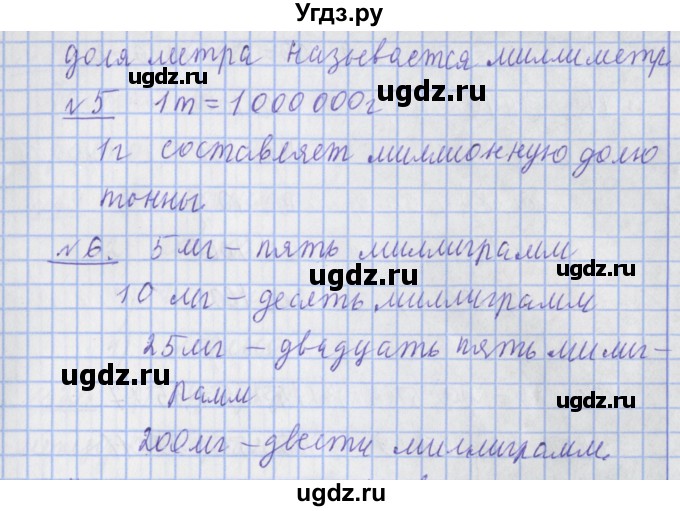 Угдз.ру
доля метра называется миллиметр
№5 1т = 1 000 000г
1г составляет миллионную долю
тонны
№6. 5мг – пять миллиграмм
10 мг – десять миллиграмм
25мг – двадцать пять милиг-
рамм
200мг – двести миллиграмм.
ugdz.ru
ugdz.ru
ugdz.ru
ugdz.ru
ugdz.ru
ugdz.ru
ugdz.ru
ugdz.ru
ugdz.ru